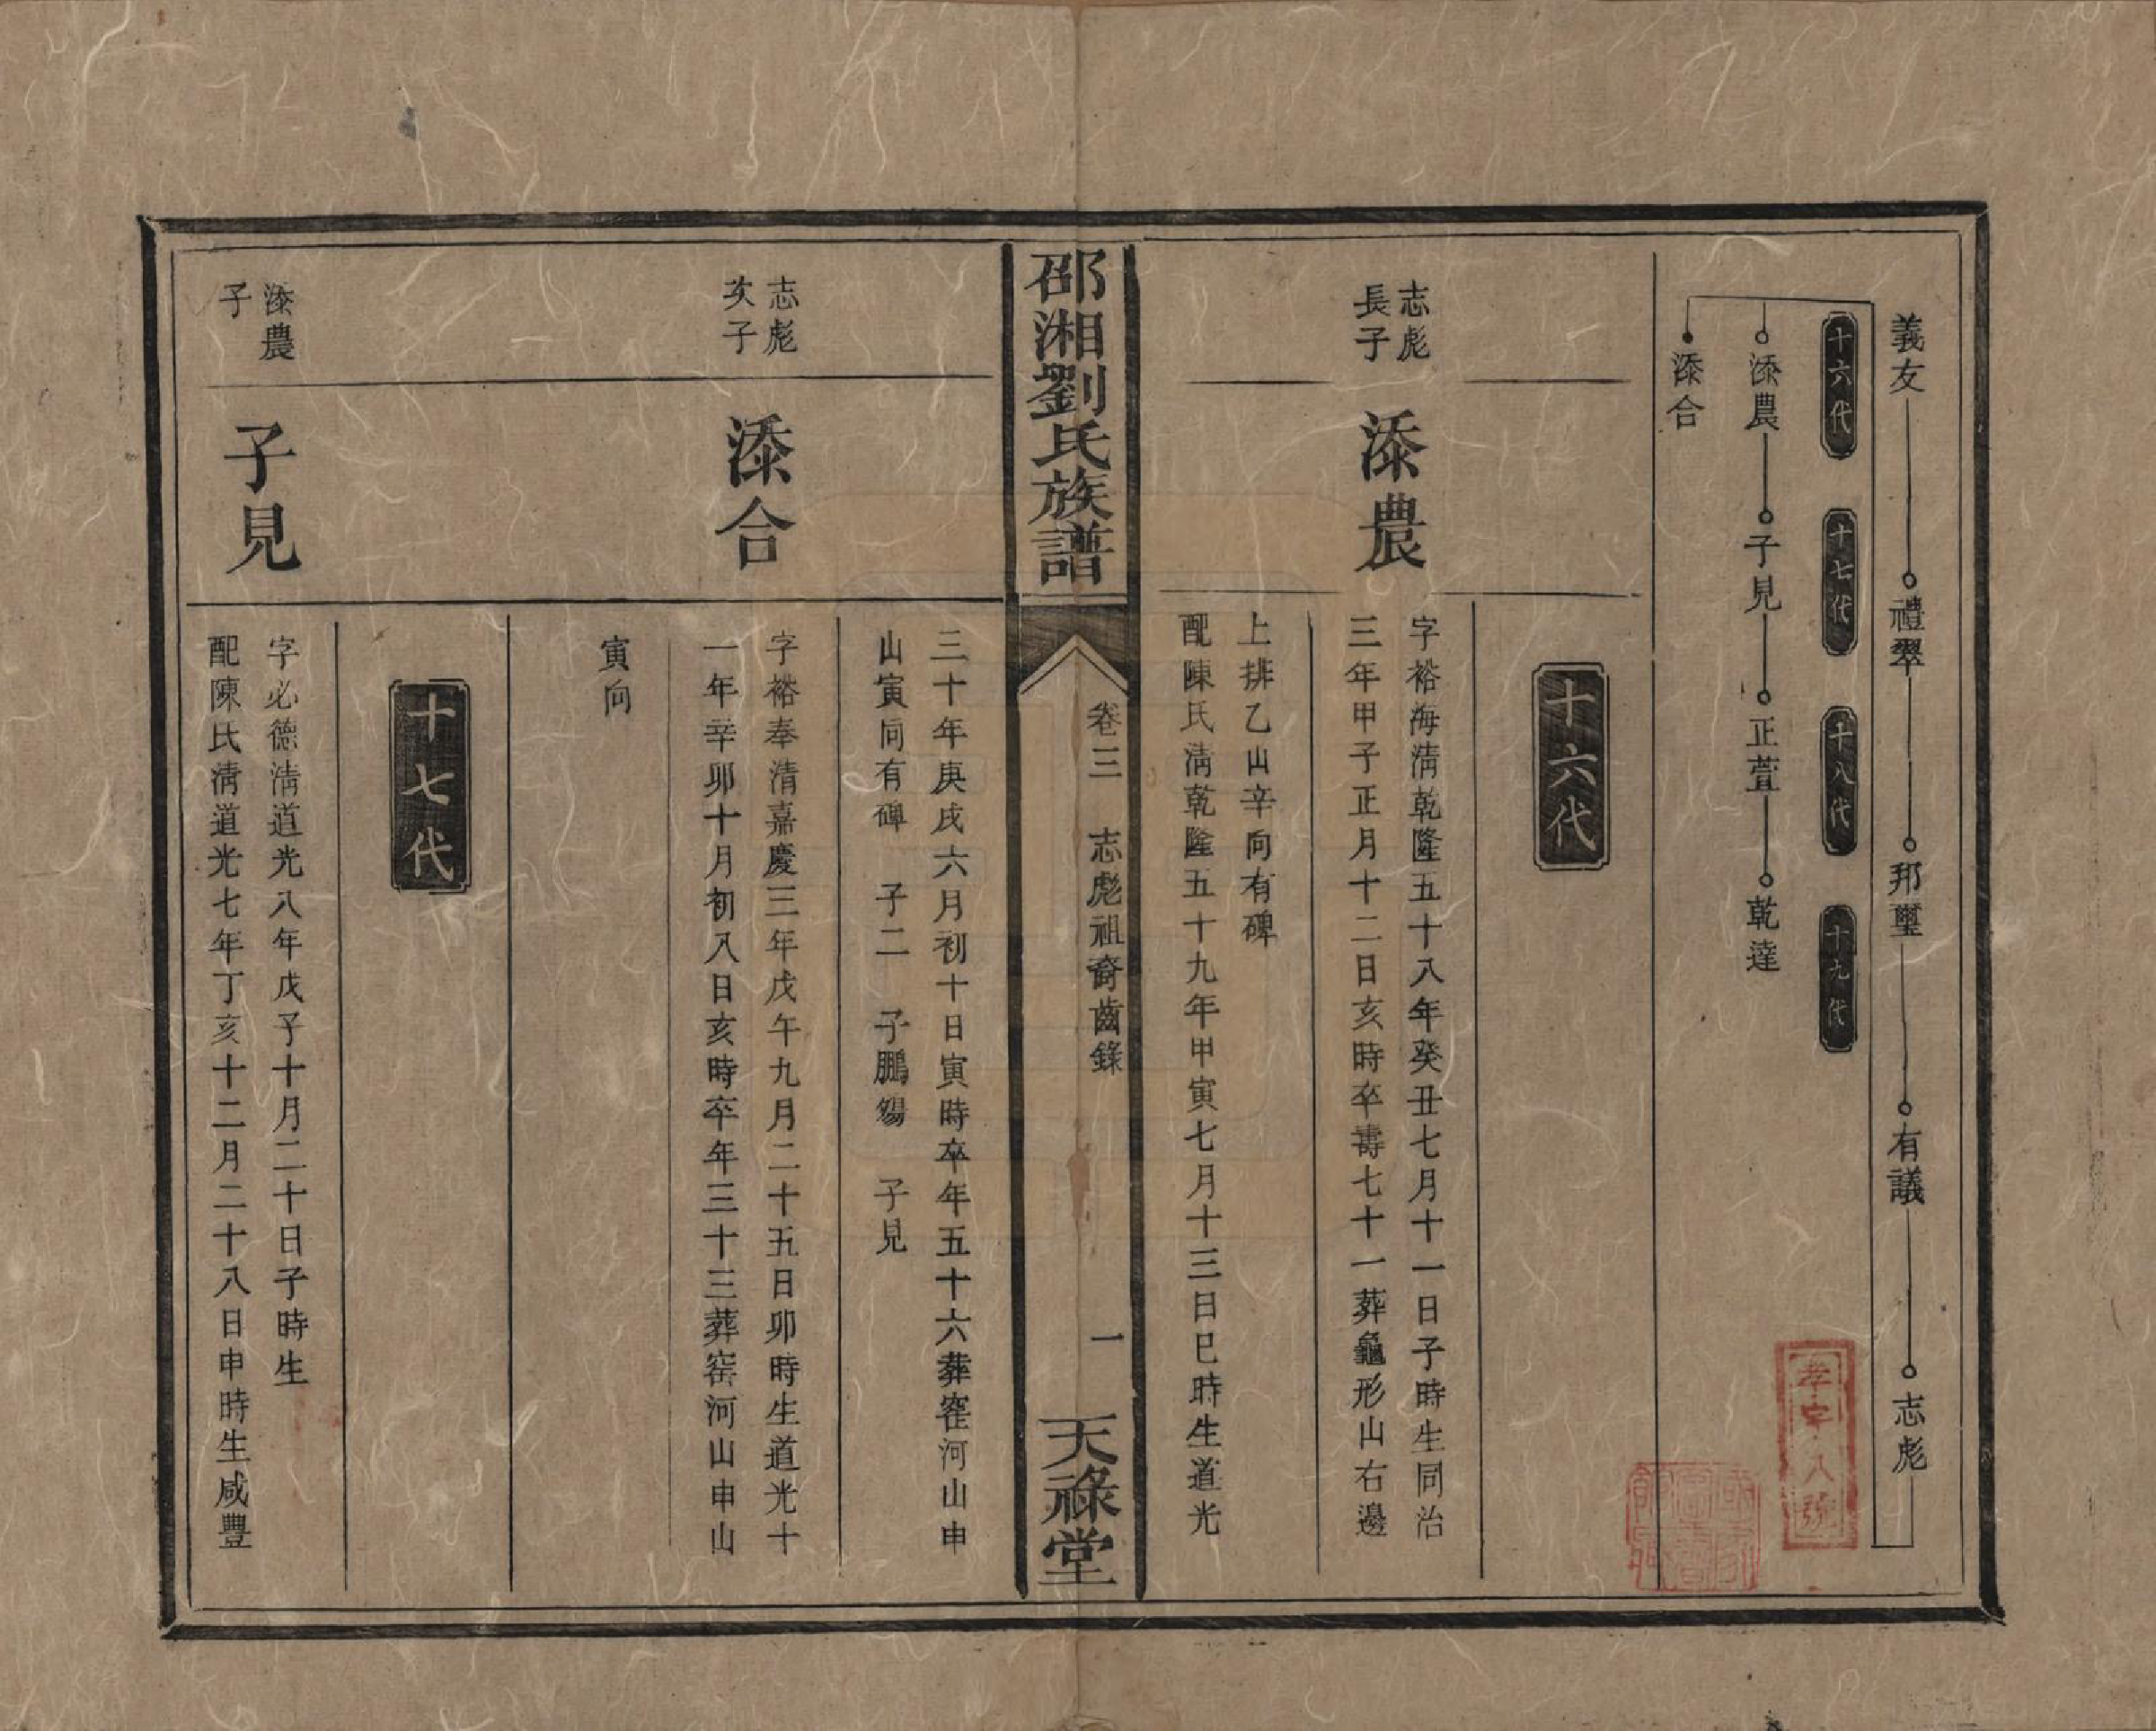 義友 禮翠 邦璽 有議 志彪
十六代 十七代 十八代 十九代
漆農 子見 正萱 乾達
漆合
十六代
志彪
長子
漆農
字裕海淸乾隆五十八年癸丑七月十一日子時生同治
三年甲子正月十二日亥時卒壽七十一葬龜形山右邊
上排乙山辛向有碑
配陳氏淸乾隆五十九年甲寅七月十三日巳時生道光
邵湘劉氏族譜
卷三 志彪祖裔齒錄 一
天祿堂
三十年庚戌六月初十日寅時卒年五十六葬窰河山申
山寅向有碑 子二 子鵬殤 子見
志彪
次子
漆合
字裕奉清嘉慶三年戊午九月二十五日卯時生道光十
一年辛卯十月初八日亥時卒年三十三葬窑河山申山
寅向
十七代
漆農
子
子見
字必德淸道光八年戊子十月二十日子時生
配陳氏淸道光七年丁亥十二月二十八日申時生咸豐
孝字八號